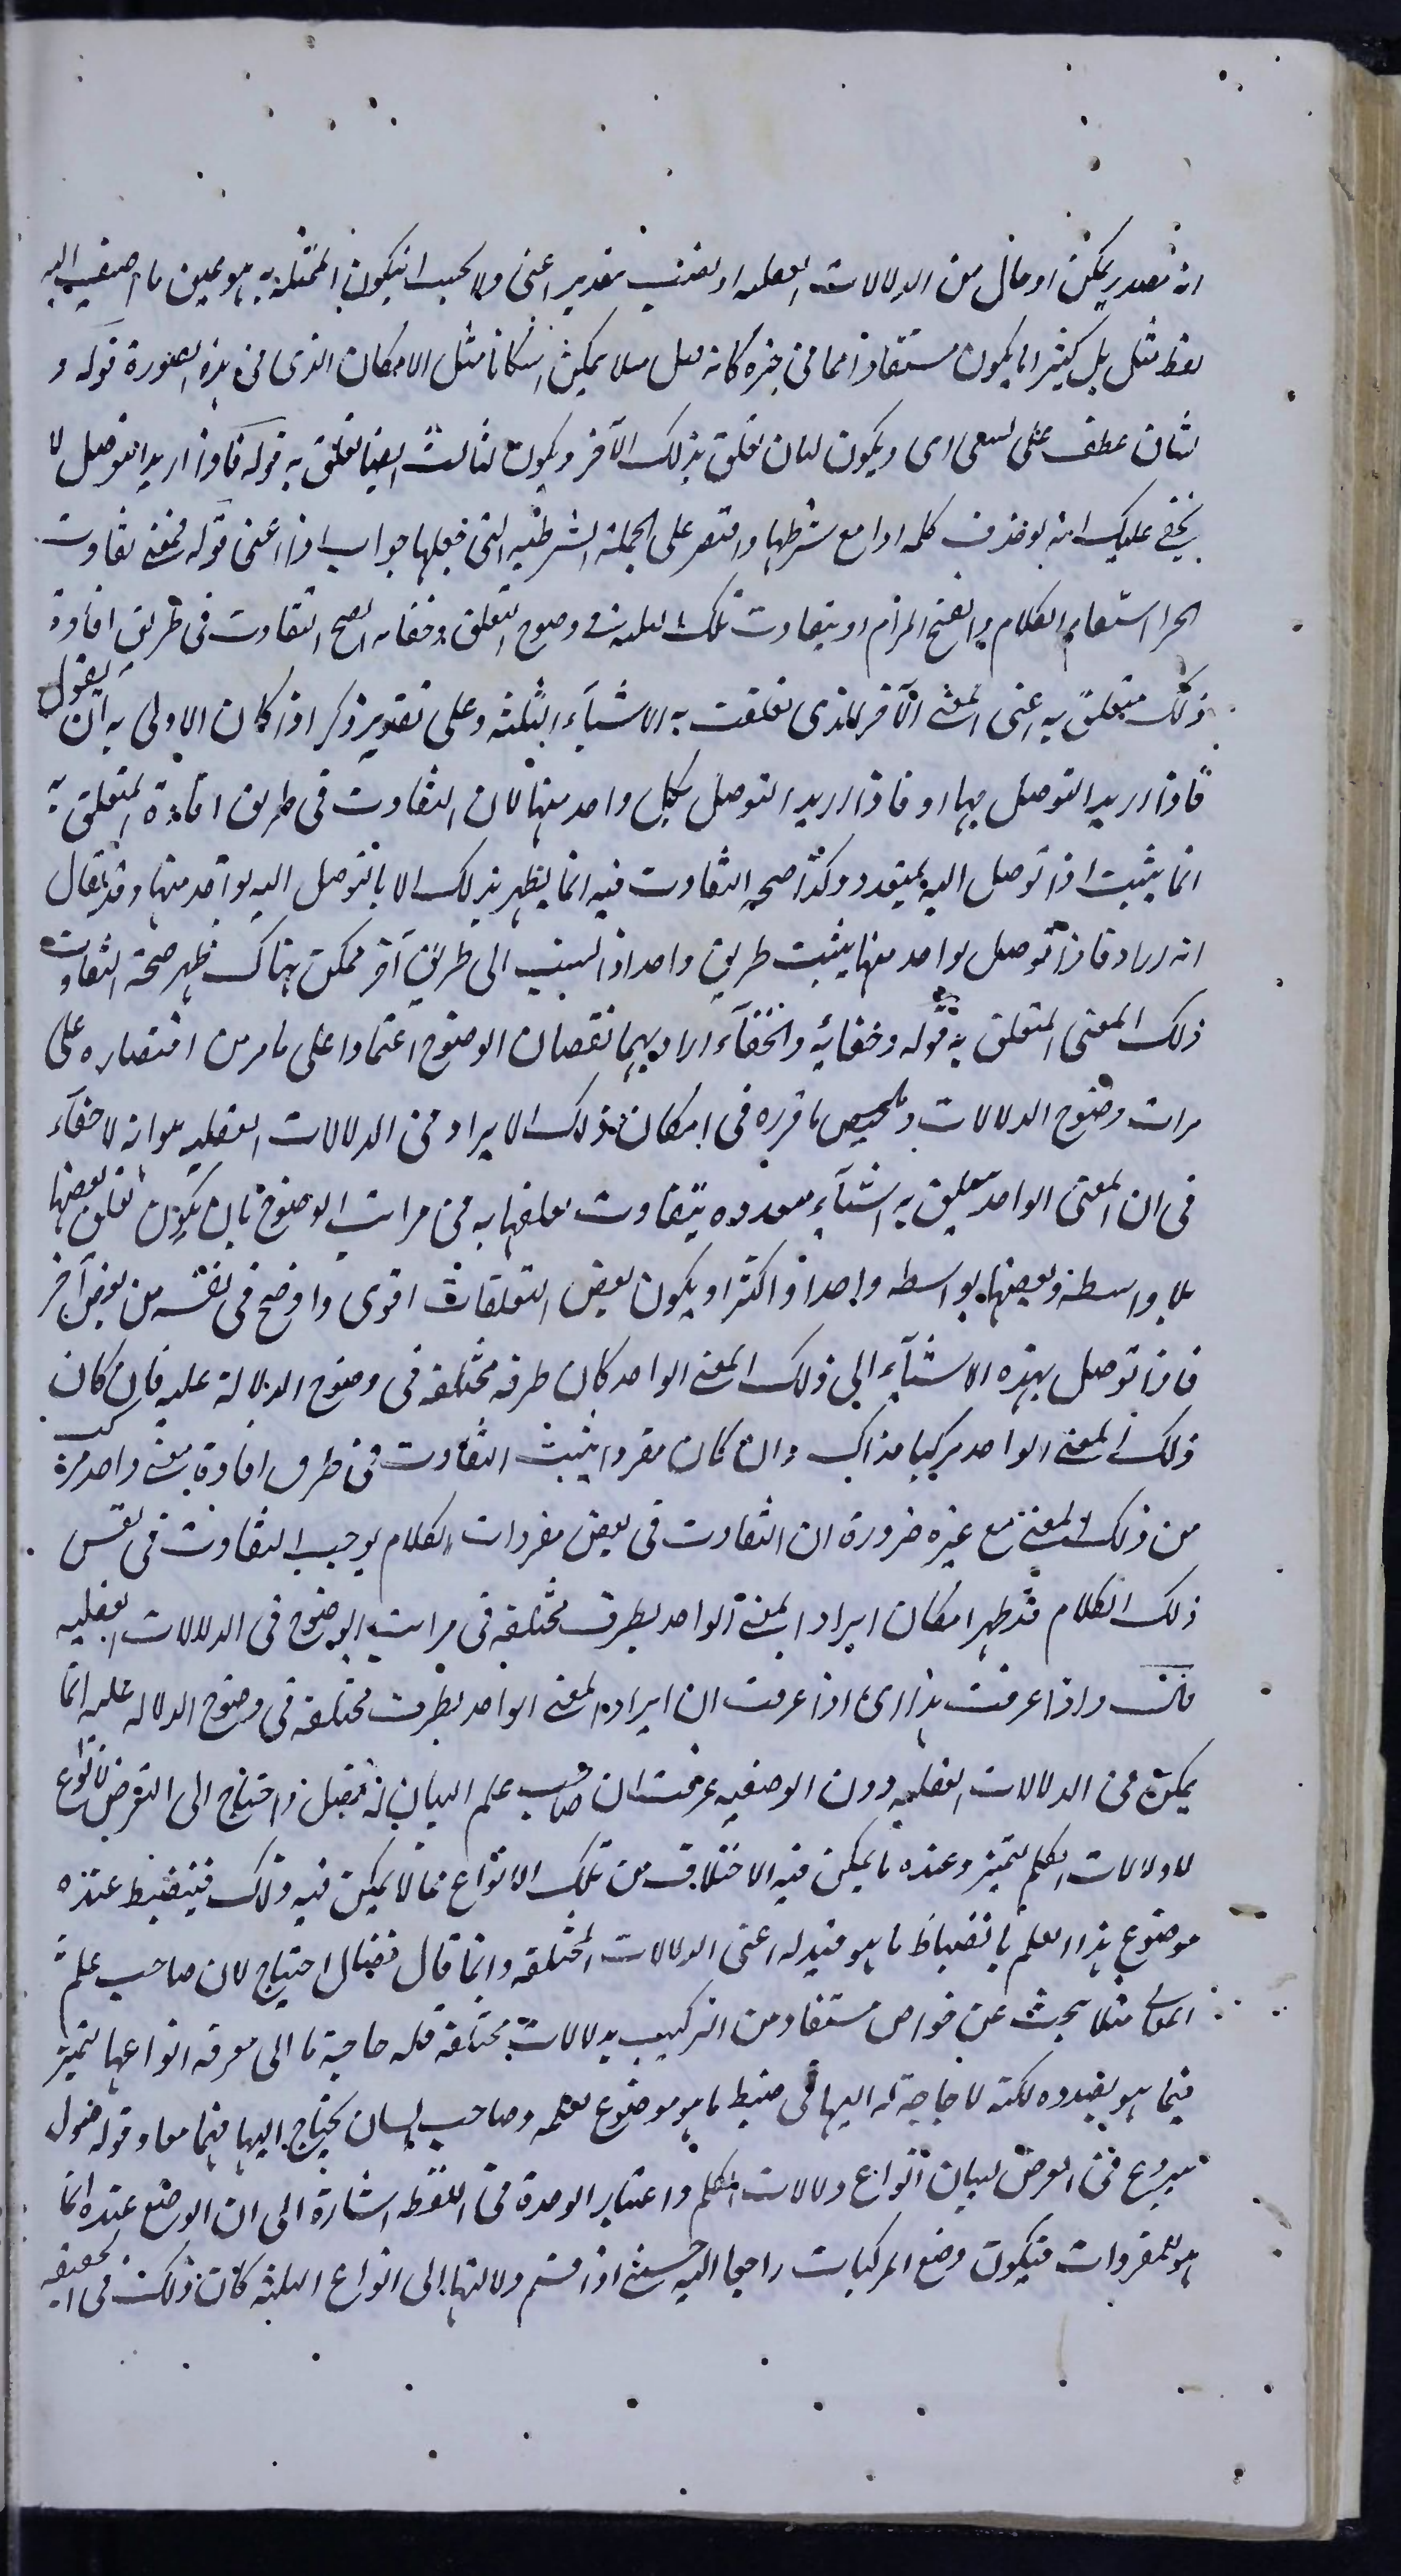 انه تصدير يمكن او حال من الدلالات العقليه او نصب بتقدير اعنى ولا يجب ان يكون الممثل به هو عين ما اضيف اليه
لفظ مثل بل كثيرا ما يكون مستفادا مما فى حيزه كانه قيل مثلا يمكن امكانا مثل الامكان الذى فى هذه الصورة قوله و
لثان عطف على لمعنى اى ويكون لثان تعلق بذلك الآخر ويكون لثالث ايضا تعلق به قوله فاذا اريد التوصل لا
يخفى عليك انه لو حذف كلمه اذا مع شرطها واقتصر على الجملة الشرطيه التى جعلها جواب اذا اعنى قوله فمتى تفاوت
الخ استقام الكلام واتضح المرام اذ بتفاوت تلك الثلثة فى وضوح التعلق وخفائه يصح التفاوت فى طريق افادة
ذلك متعلق به اعنى المعنى الآخر الذى تعلقت به الاشيآء الثلثه وعلى تقدير ذكر اذا كان الاولى به ان يقول
فاذا اريد التوصل بها او فاذا اريد التوصل بكل واحد منها لان التفاوت فى طريق افادة المتعلق به
انما يثبت اذا توصل اليه بمتعدد وكذا صحه التفاوت فيه انما يظهر بذلك لا بالتوصل اليه بواحد منها وقد يقال
انه اراد فاذا توصل بواحد منها يثبت طريق واحد اذا نسب الى طريق آخر ممكن هناك ظهر صحة التفاوت
ذلك المعنى المتعلق به قوله وخفائه والخفآء اراد بهما نقصان الوضوح اعتمادا على ما مر من اقتصاره على
مراتب وضوح الدلالات وتلخيص ما قرره فى امكان ذلك الايراد فى الدلالات العقليه هو انه لا خفآء
فى ان المعنى الواحد يتعلق به اشيآء معدوده يتفاوت تعلقها به فى مراتب الوضوح بان يكون تعلق بعضها
بلا واسطه وبعضها بواسطه واحدة او اكثر او يكون بعض التعلقات اقوى واوضح فى نفسه من بعض آخر
فاذا توصل بهذه الاشيآء الى ذلك المعنى الواحد كان طرقه مختلفه فى وضوح الدلالة عليه فان كان
ذلك المعنى الواحد تركيبيا فذاك وان كان مفردا يثبت التفاوت فى طرق افادة معنى واحد مركب
من ذلك المعنى مع غيره ضرورة ان التفاوت فى بعض مفردات الكلام يوجب التفاوت فى نفس
ذلك الكلام فقد ظهر امكان ايراد المعنى الواحد بطرق مختلفه فى مراتب الوضوح فى الدلالات العقليه
قال واذا عرفت هذا اى اذا عرفت ان ايراد المعنى الواحد بطرق مختلفه فى وضوح الدلاله عليه انما
يمكن فى الدلالات العقليه دون الوضعيه عرفت ان صاحب علم البيان له فضل احتياج الى التعرض لانواع
لا دلالات الكلم لتميز عنده ما يمكن فيه الاختلاف من تلك الانواع مما لا يمكن فيه ذلك فينضبط عنده
موضوع هذا العلم بانضباط ما هو قيد له اعنى الدلالات المختلفه وانما قال فضل احتياج لان صاحب علم
المعانى مثلا يبحث عن خواص مستفاد من التركيب بدلالات مختلفه فله حاجة ما الى معرفة انواعها لتميز
فيما هو بصدده لكنه لا حاجة له اليها فى ضبط ما هو موضوع لعلمه وصاحب البيان يحتاج اليها فيهما معا وقوله فنقول
شروع فى التعرض لبيان انواع دلالات الكلم واعتبار الوحدة فى اللفظه اشارة الى ان الوضع عنده انما
هو للمفردات فيكون وضع المركبات راجعا اليه حتى اذا قسم دلالتها الى انواع الثلثه كان ذلك فى الحقيقه